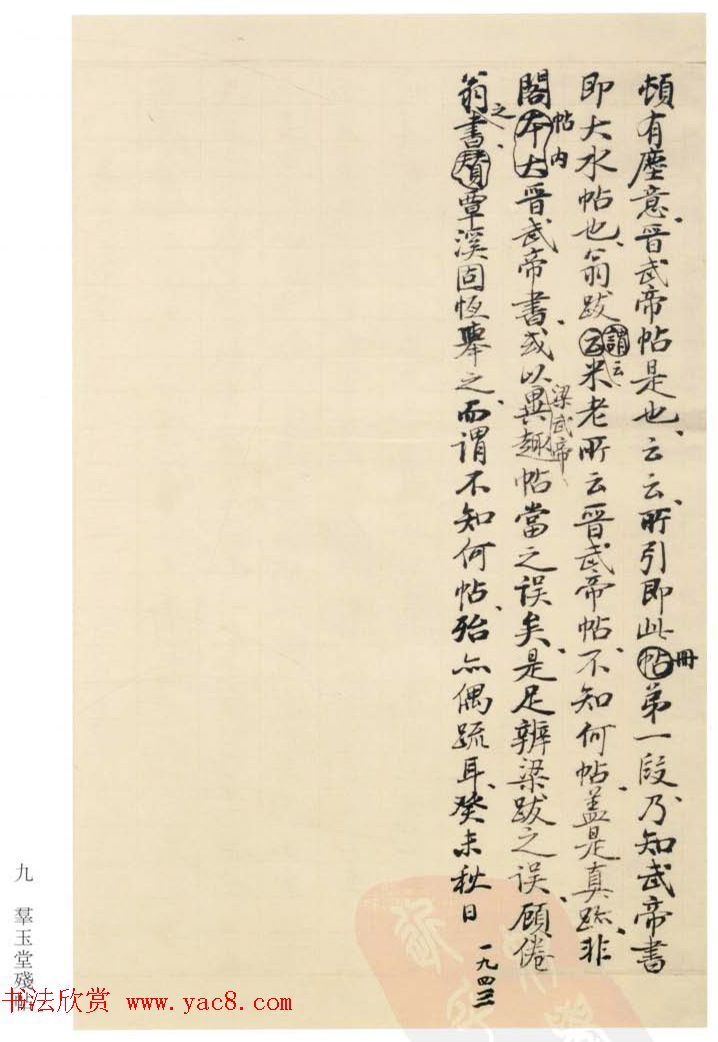 頓有塵意、晉武帝帖是也、云云、所引即此帖冊第一段、乃知武帝書
即大水帖也、翁跋云謂云米老所云晉武帝帖、不知何帖、蓋是真跡、非
閣本大帖内晉武帝書、或以梁武帝異趣帖當之誤矣、是足辨梁跋之誤、顧倦
翁之書贊、覃溪固恆舉之、而謂不知何帖、殆亦偶疏耳、癸未秋日
一九四三
九 羣玉堂殘帖
书法欣赏 www.yac8.com